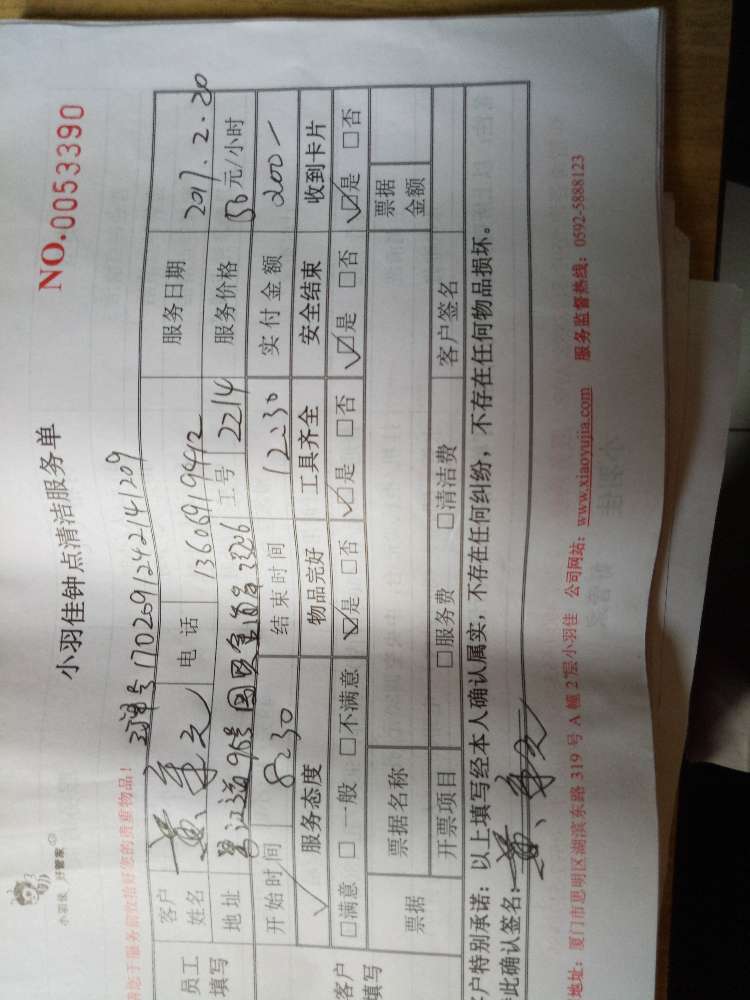 小羽佳 好管家
小羽佳钟点清洁服务单
NO.0053390
您于服务前收拾好您的贵重物品!
1702091242141209
员工填写 客户姓名 黄 电话 13606919412 服务日期 2017.2.20
地址 工号 2214 服务价格 50元/小时
开始时间 8:30 结束时间 12:30 实付金额 200-
客户填写 服务态度 物品完好 工具齐全 安全结束 收到卡片
□满意 □一般 □不满意 ☑是 □否 ☑是 □否 ☑是 □否 ☑是 □否
票据 票据名称 票据金额
开票项目 □服务费 □清洁费 客户签名
户特别承诺:以上填写经本人确认属实,不存在任何纠纷,不存在任何物品损坏。
此确认签名: 黄
地址:厦门市思明区湖滨东路 319 号 A 幢 2 层小羽佳 公司网站:www.xiaoyujia.com 服务监督热线:0592-5888123